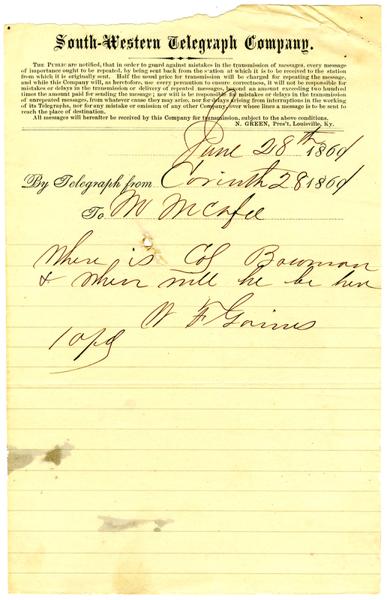 South-Western Telegraph Company.
THE PUBLIC are notified, that in order to guard against mistakes in the transmission of messages, every message
of importance ought to be repeated, by being sent back from the station at which it is to be received to the station
from which it is originally sent. Half the usual price for transmission will be charged for repeating the message,
and while this Company will, as heretofore, use every precaution to ensure correctness, it will not be responsible for
mistakes or delays in the transmission or delivery of repeated messages, beyond an amount exceeding two hundred
times the amount paid for sending the message; nor will it be responsible for mistakes or delays in the transmission
of unrepeated messages, from whatever cause they may arise, nor for delays arising from interruptions in the working
of its Telegraphs, nor for any mistake or omission of any other Company, over whose lines a message is to be sent to
reach the place of destination.
All messages will hereafter be received by this Company for transmission, subject to the above conditions.
N. GREEN, Pres't, Louisville, Ky.
June 28th 1861
By Telegraph from Corinth 28 1861
To M McAfee
Where is Col Bowman
& when will he be here
W F Gaines
10 pd